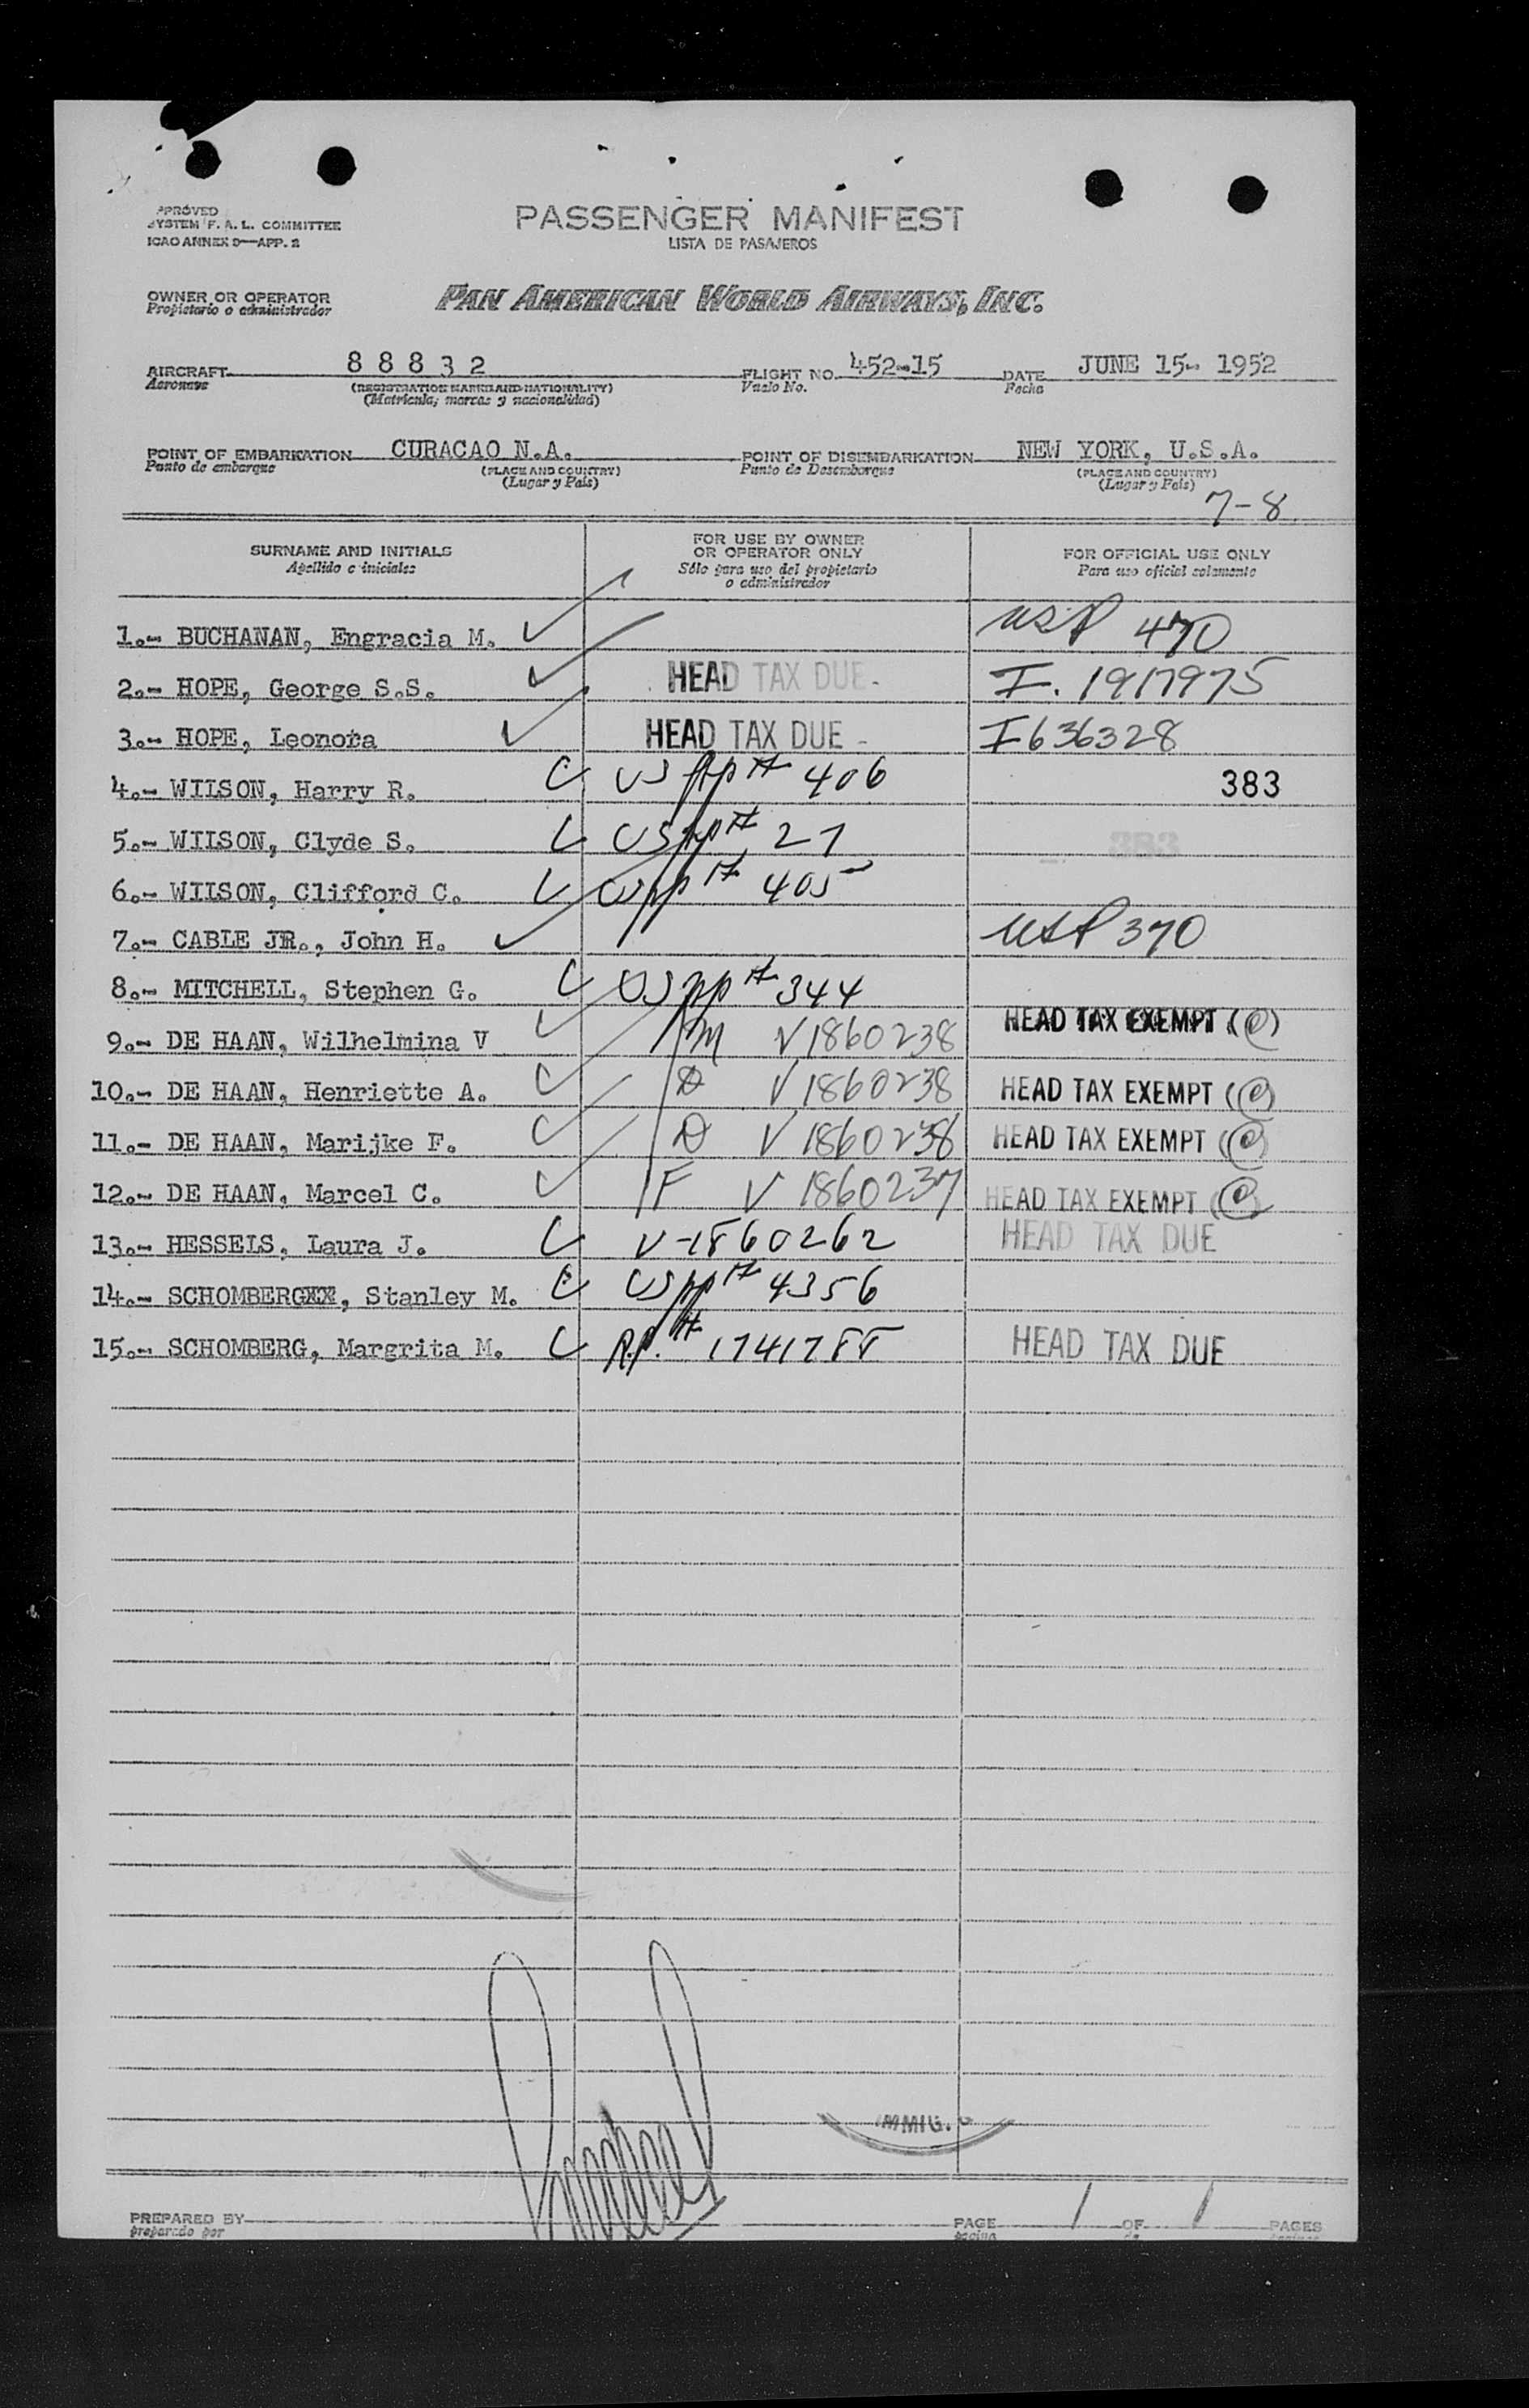 APPROVED
SYSTEM F. A. L. COMMITTEE
ICAO ANNEX 9—APP. 2
PASSENGER MANIFEST
LISTA DE PASAJEROS
OWNER OR OPERATOR
Propietario o administrador
PAN AMERICAN WORLD AIRWAYS, INC.
AIRCRAFT 88832 FLIGHT NO. 452-15 DATE JUNE 15- 1952
Aeronave (REGISTRATION MARKS AND NATIONALITY) Vuelo No. Fecha
(Matricula, marcas y nacionalidad)
POINT OF EMBARKATION CURACAO N.A. POINT OF DISEMBARKATION NEW YORK, U.S.A.
Punto de embarque (PLACE AND COUNTRY) Punto de Desembarque (PLACE AND COUNTRY)
(Lugar y País) (Lugar y País)
7-8
SURNAME AND INITIALS
Apellido e iniciales
FOR USE BY OWNER
OR OPERATOR ONLY
Sólo para uso del propietario
o administrador
FOR OFFICIAL USE ONLY
Para uso oficial solamente
1.- BUCHANAN, Engracia M. USP 470
2.- HOPE, George S.S. HEAD TAX DUE - I. 1917975
3.- HOPE, Leonora HEAD TAX DUE - I636328
4.- WILSON, Harry R. US pp # 406 383
5.- WILSON, Clyde S. US pp # 27 383
6.- WILSON, Clifford C. US pp # 405
7.- CABLE JR., John H. USP 370
8.- MITCHELL, Stephen G. US pp # 344
9.- DE HAAN, Wilhelmina V M V1860238 HEAD TAX EXEMPT (C)
10.- DE HAAN, Henriette A. D V1860238 HEAD TAX EXEMPT (C)
11.- DE HAAN, Marijke F. D V1860238 HEAD TAX EXEMPT (C)
12.- DE HAAN, Marcel C. F V1860237 HEAD TAX EXEMPT (C)
13.- HESSELS, Laura J. V-1860262 HEAD TAX DUE
14.- SCHOMBERGXX, Stanley M. US pp # 4356
15.- SCHOMBERG, Margrita M. R.P. # 1741788 HEAD TAX DUE
IMMIG.
PREPARED BY PAGE 1 OF 1 PAGES
preparado por página de